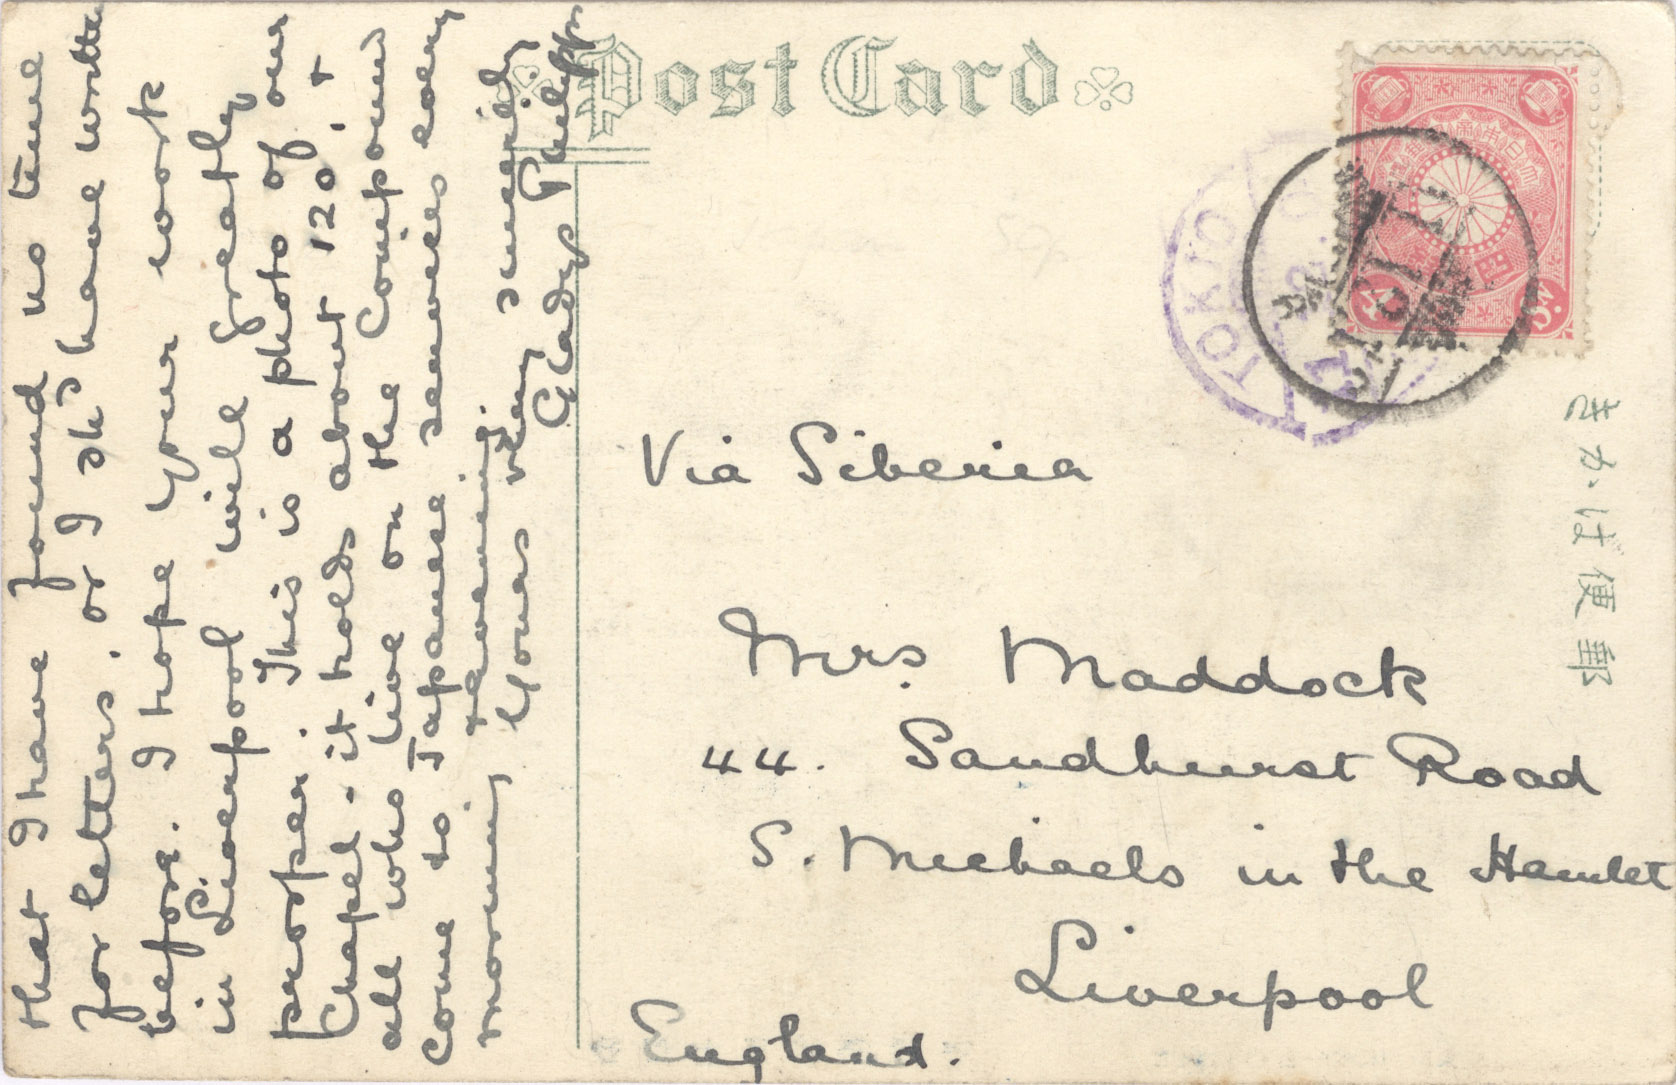 Post Card
that I have found no time
for letters, or I shd have written
before. I hope your work
in Liverpool will greatly
prosper. This is a photo of our
Chapel - it holds about 120, +
all who live on the Compound
come to Japanese services every
morning + evening.
Yours very sincerely
Gladys Philipps
Via Siberia
Mrs Maddock
44. Sandhurst Road
S. Michaels in the Hamlet
Liverpool
England.
郵便はかき
TOKIO
大日本帝國郵便
4